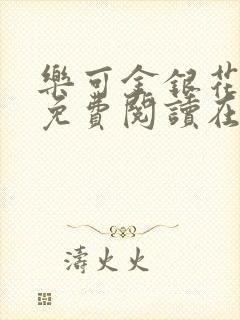 樂可金銀花
免費閱讀在
濤火火